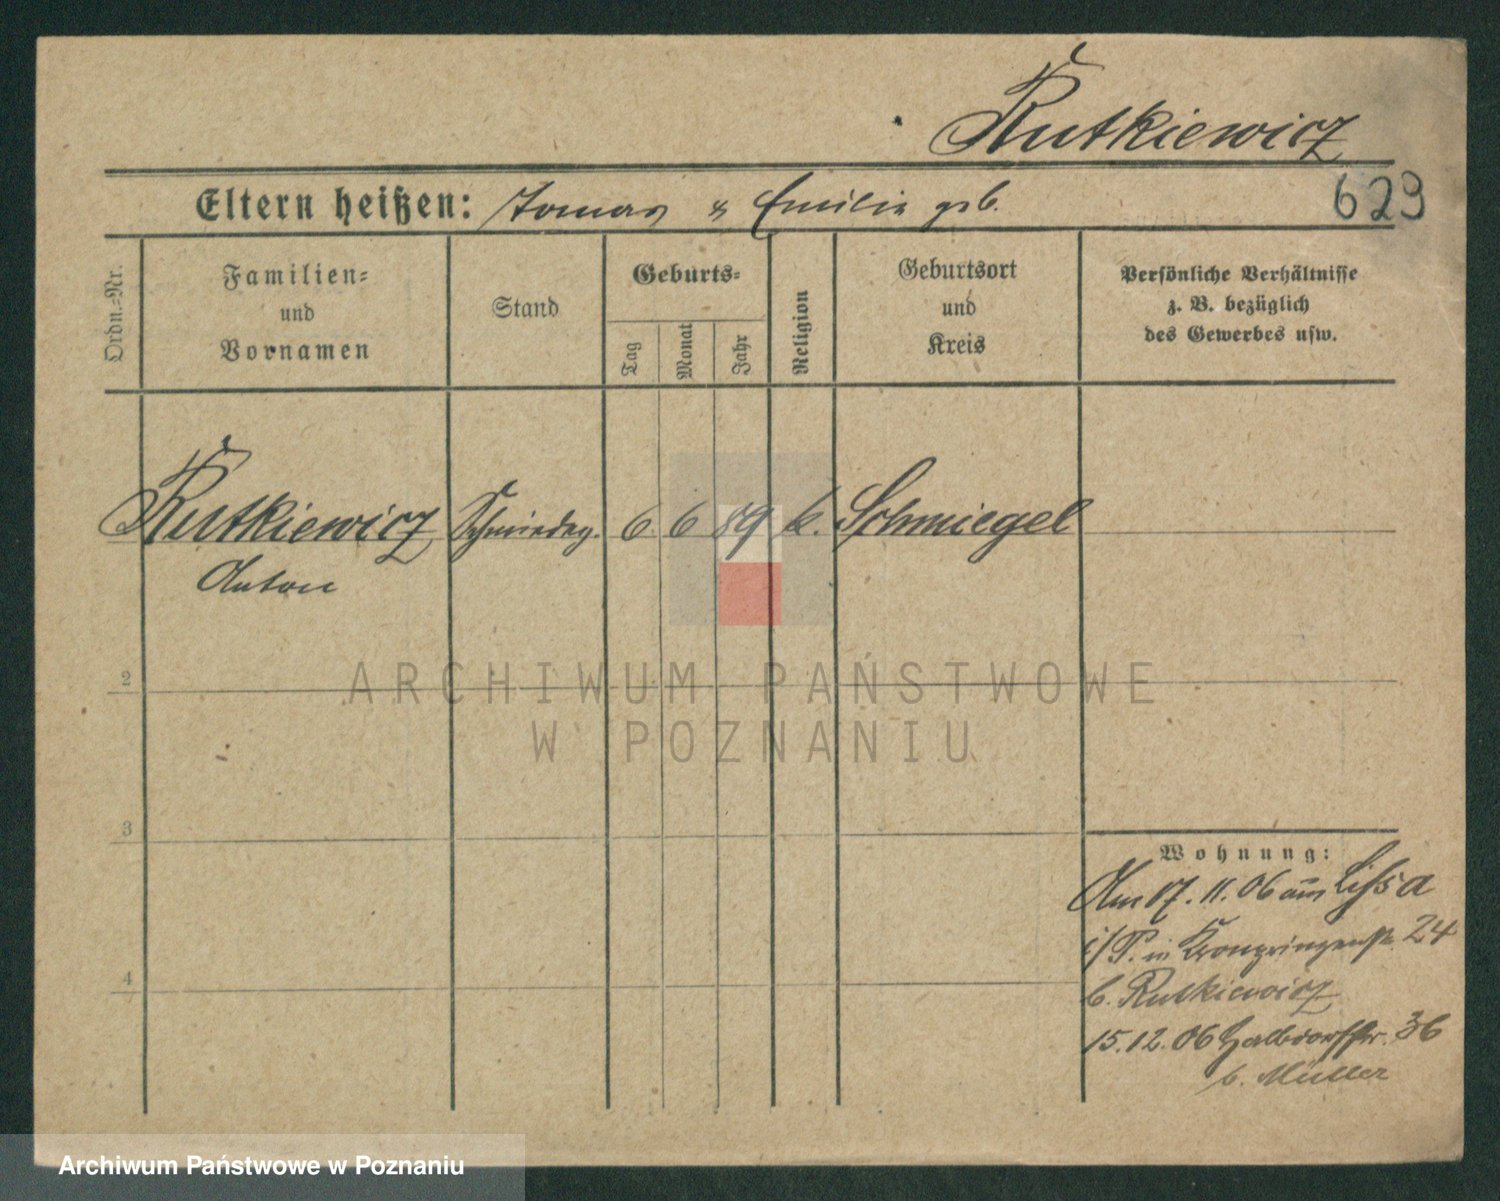 Rutkiewicz
Eltern heißen: Tomas & Emilie geb.
629
Ordn.=Nr.
Familien=
und
Vornamen
Stand
Geburts=
Tag
Monat
Jahr
Religion
Geburtsort
und
Kreis
Persönliche Verhältnisse
z. B. bezüglich
des Gewerbes usw.
Rutkiewicz Schmiedeg. 6 6 89 k. Schmiegel
Anton
2
3
4
Wohnung:
Am 17. 11. 06 aus Lissa
i/P. in Kronprinzenstr. 24
b. Rutkiewicz
15. 12. 06 Halbdorfstr. 36
b. Müller
ARCHIWUM PAŃSTWOWE
W POZNANIU
Archiwum Państwowe w Poznaniu